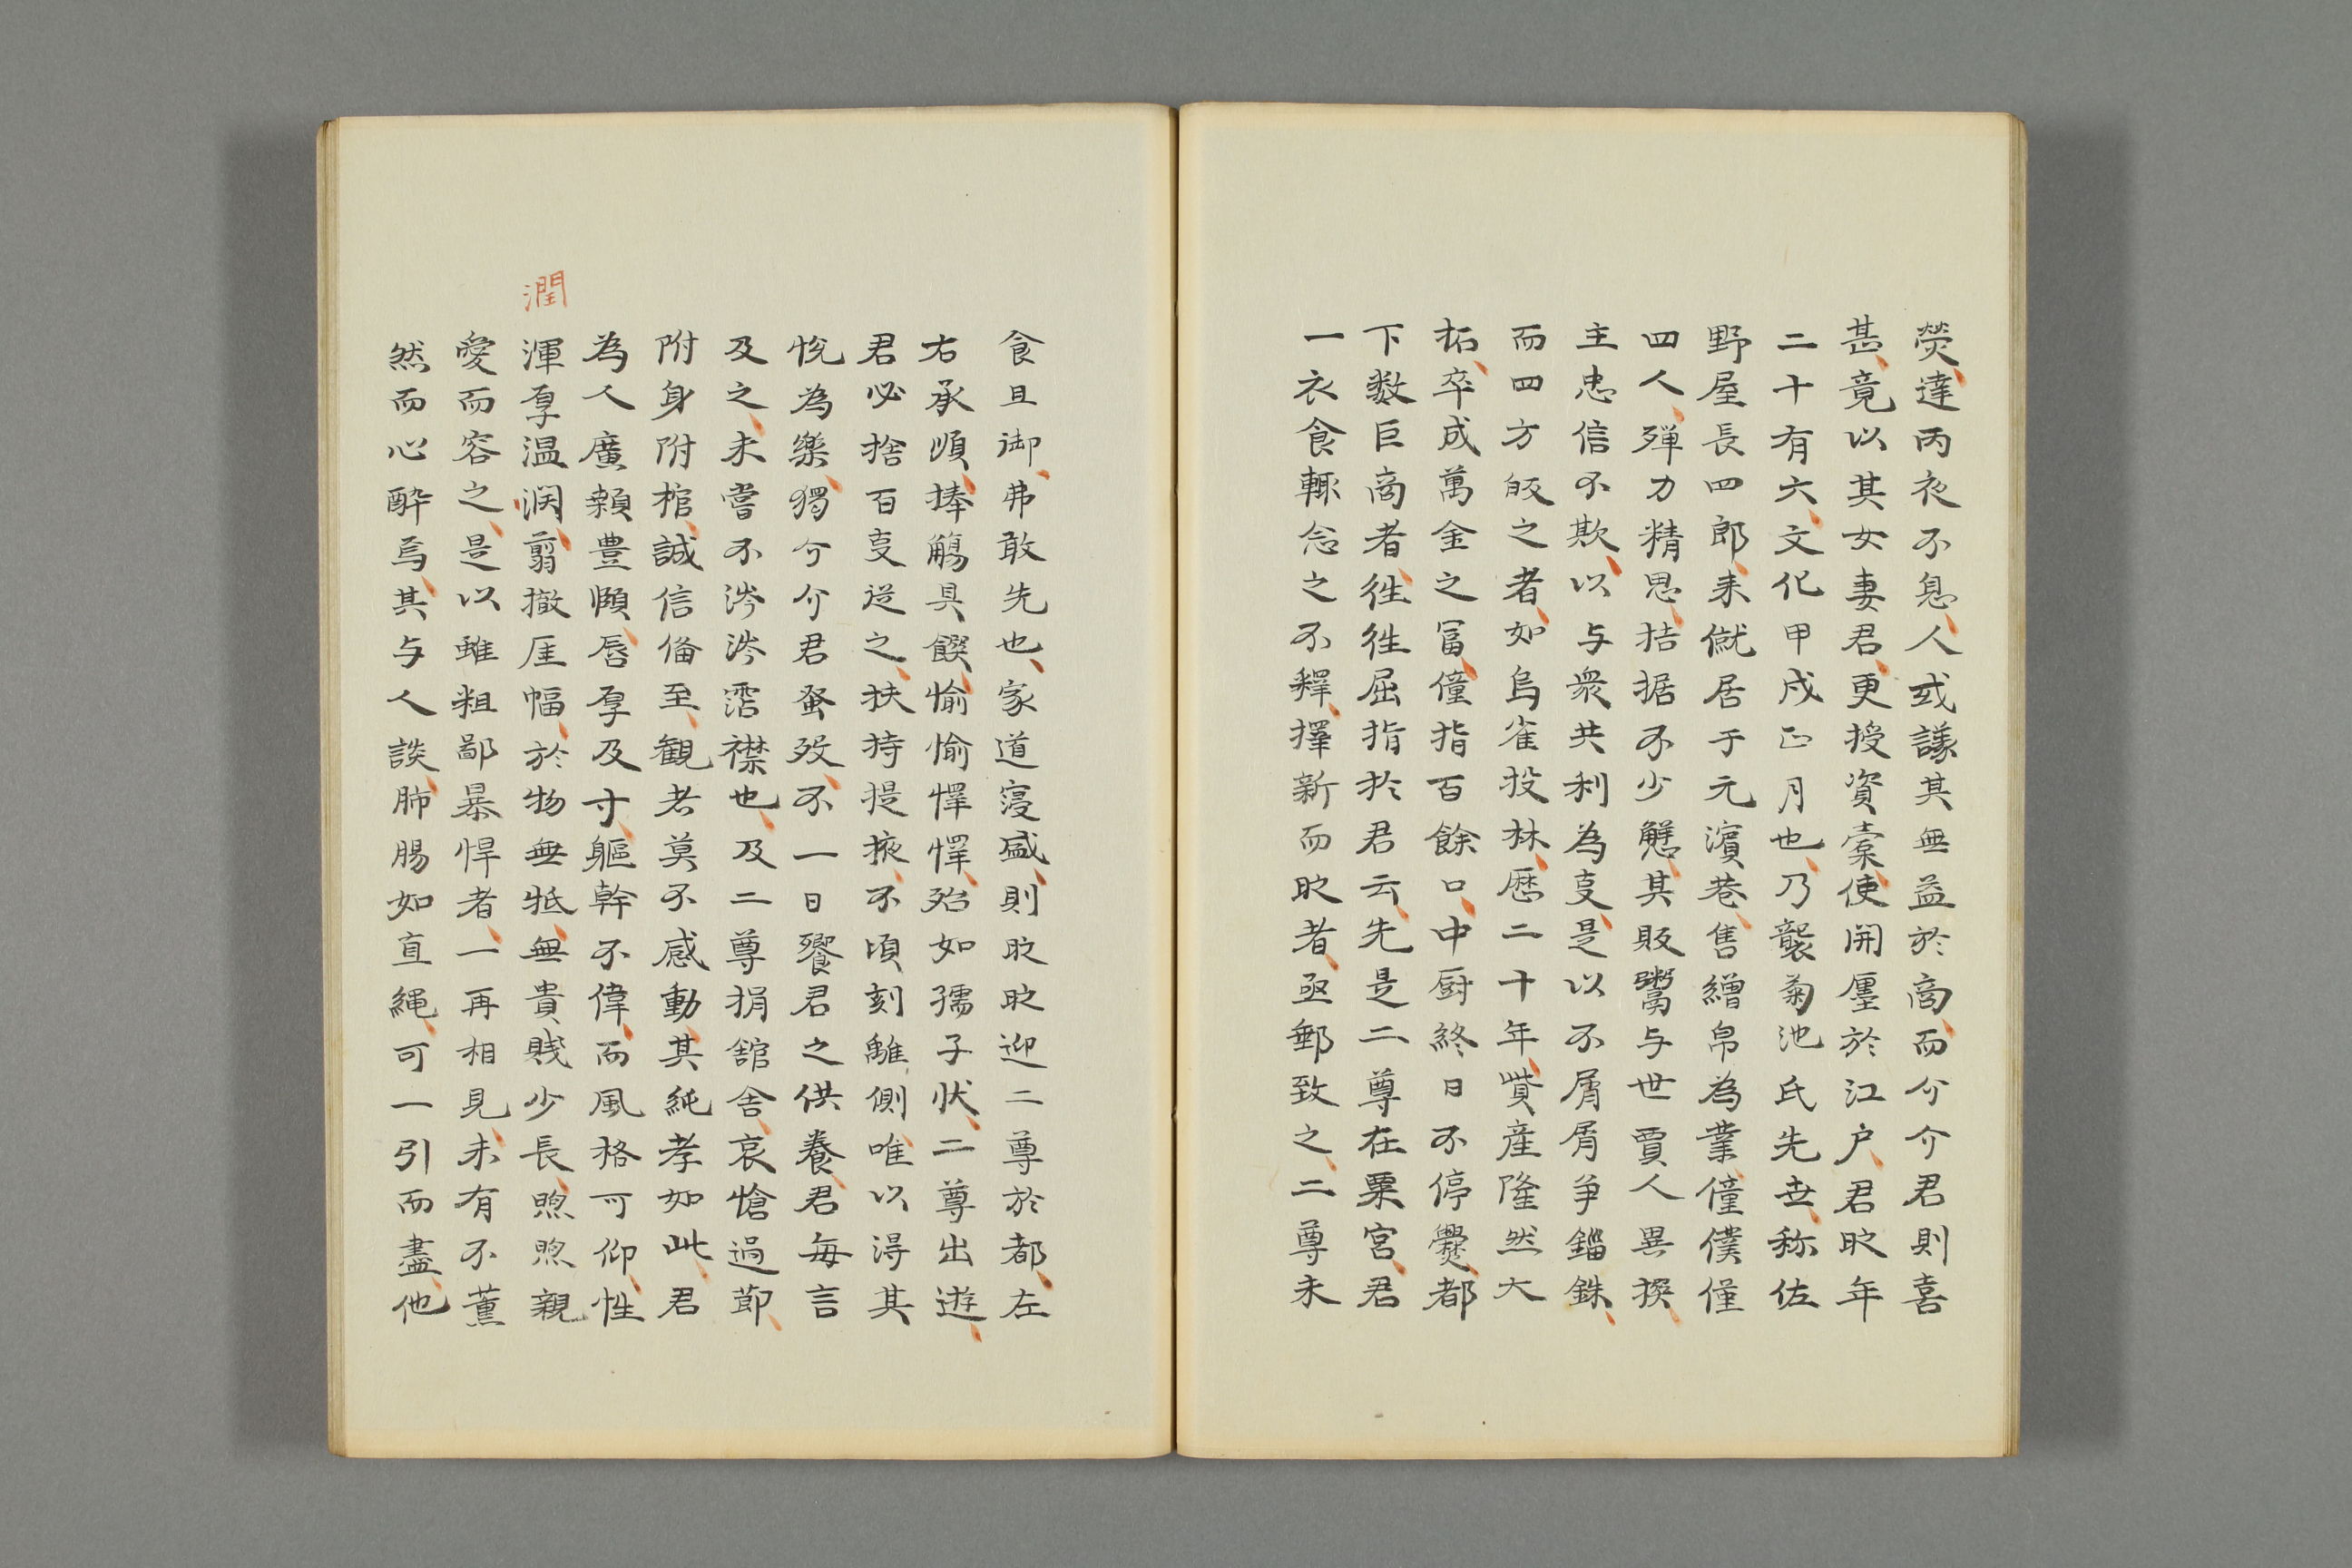 熒、達丙夜不息、人或議其無益於商、而介介君則喜
甚、竟以其女妻君、更授資橐、使開廛於江戸、君時年
二十有六、文化甲戌正月也、乃襲菊池氏先世、称佐
野屋長四郎、来僦居于元濱巷、售繒帛為業、僮僕僅
四人、殫力精思、拮据不少愆、其販鬻与世賈人異揆、
主忠信不欺、以与衆共利為叓、是以不屑屑争錙銖、
而四方皈之者、如烏雀投林、歴二十年、貲産隆然大
拓、卒成萬金之冨、僮指百餘口、中厨終日不停爨、都
下数巨商者、徃徃屈指於君云、先是二尊在粟宮、君
一衣食輙念之不釋、擇新而時者、亟郵致之、二尊未
食且御、弗敢先也、家道寖盛、則時時迎二尊於都、左
右承順、捧觴具饌、愉愉懌懌、殆如孺子状、二尊出遊、
君必捨百叓従之、扶持提掖、不頃刻離側、唯以淂其
悅為樂、獨介介君蚤歿、不一日饗君之供養、君毎言
及之、未嘗不涔涔霑襟也、及二尊捐舘舎、哀愴過節、
附身附棺、誠信備至、観者莫不感動、其純孝如此、君
為人廣顙豊頤、唇厚及寸、軀幹不偉、而風格可仰、性
渾厚温潤、翦撤厓幅、於物無牴、無貴賎少長、煦煦親
潤
愛而容之、是以雖粗鄙暴悍者、一再相見、未有不薫
然而心酔焉、其与人談、肺腸如直繩、可一引而盡、他